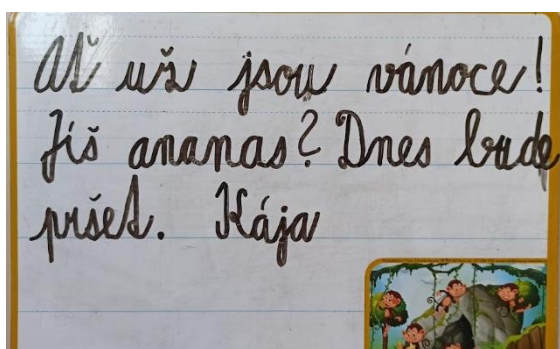 Ať už jsou vánoce!
Jíš ananas? Dnes bude
pršet. Kája